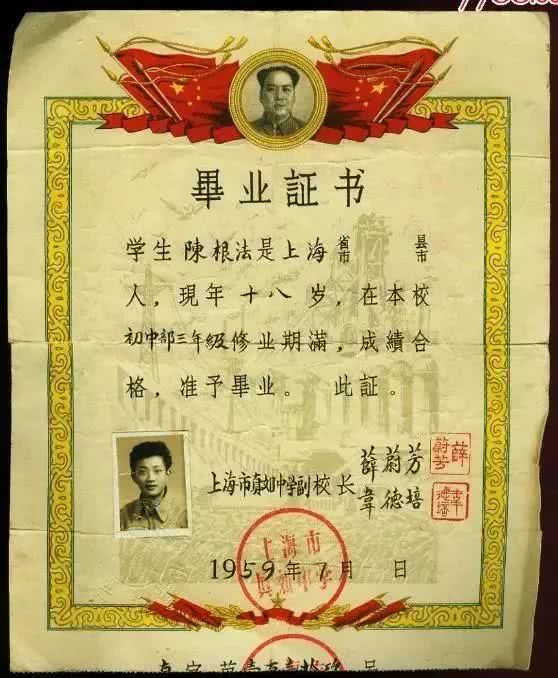 畢业証书
学生 陳根法是上海省市 县市
人，現年十八岁，在本校
初中部三年級修业期滿，成績合
格，准予畢业。此証。
薛蔚芳
上海市真如中学副校长
韋德培
薛蔚芳
韋德培
1959年7月 日
上海市
真如中学